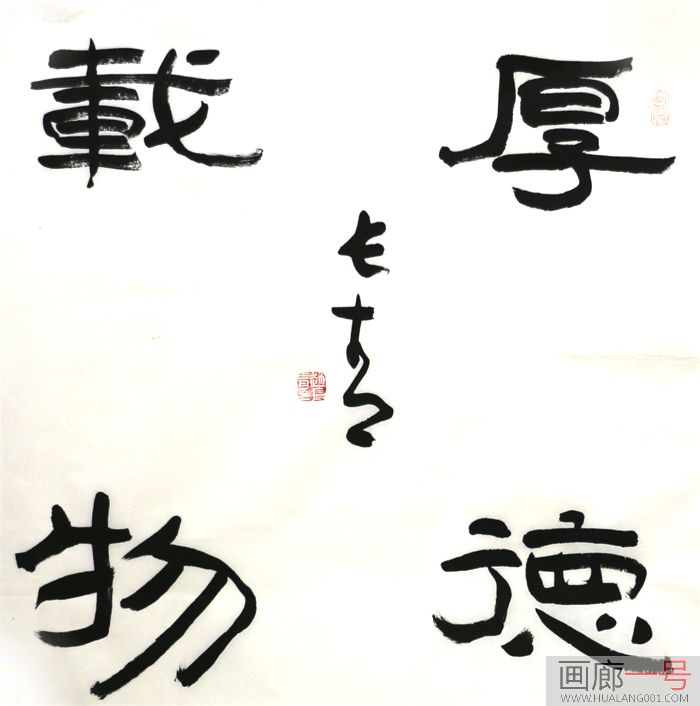 厚德
載物
长青
画廊一号
WWW.HUALANG001.COM